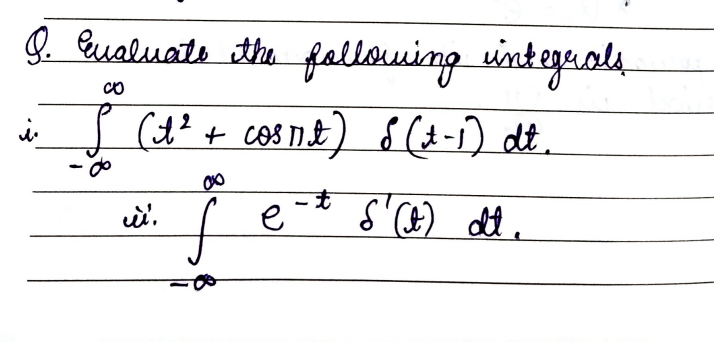 Q. Evaluate the following integrals.
i. ∫_{-∞}^{∞} (t² + cos πt) δ(t-1) dt.
ii. ∫_{-∞}^{∞} e^{-t} δ'(t) dt.